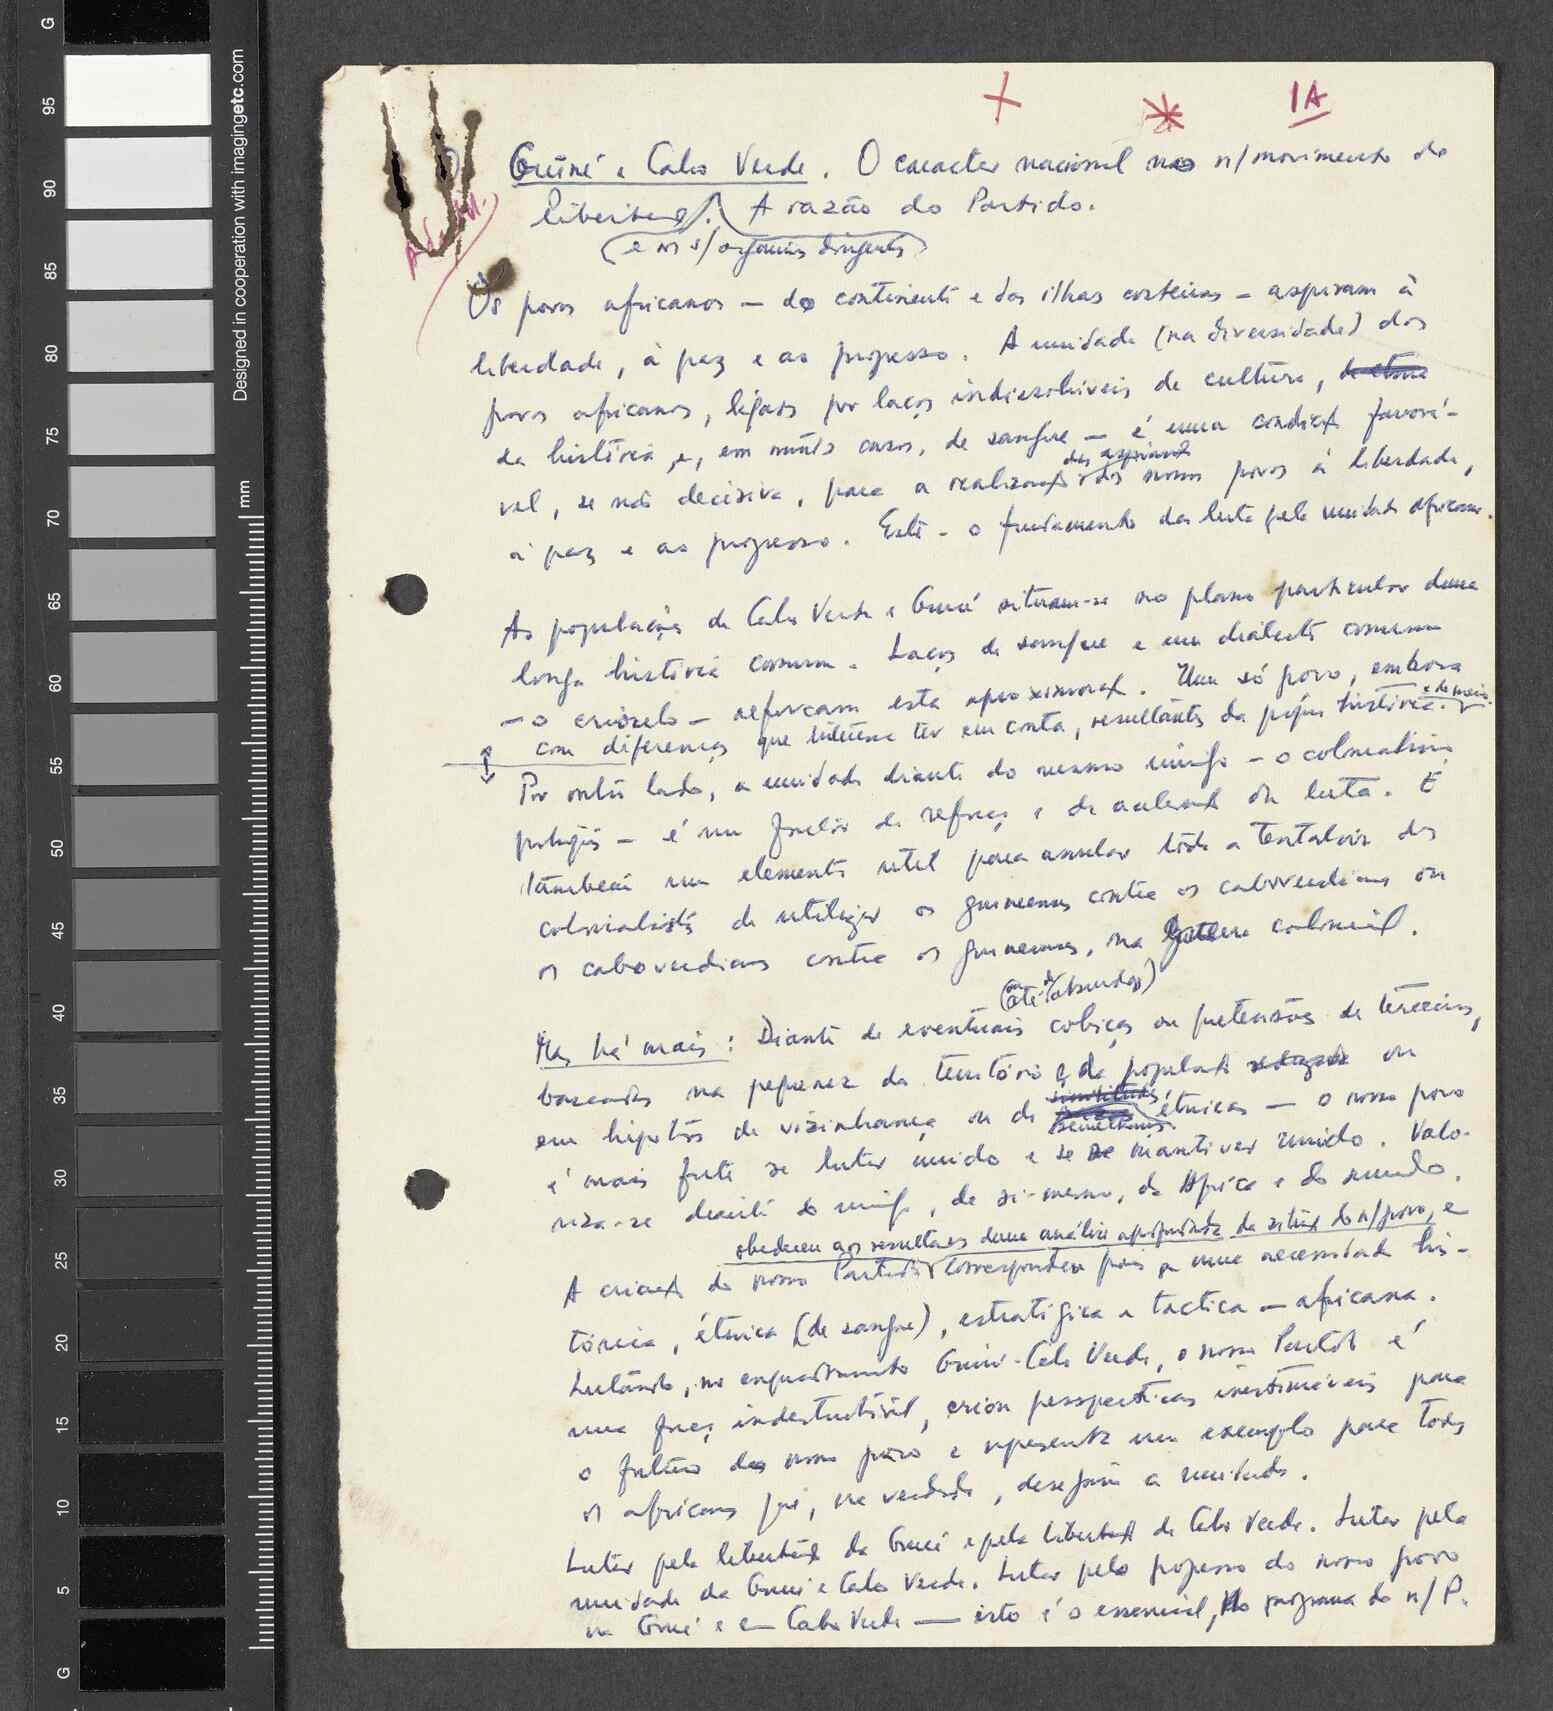 IA
Guiné e Cabo Verde. O caracter nacional no n/movimento de
libertação. A razão do Partido.
(e nos s/orgamis dirigentes)
Os povos africanos — do continente e das ilhas costeiras — aspiram à
liberdade, à paz e ao progresso. A unidade (na diversidade) dos
povos africanos, ligados por laços indissolúveis de cultura,
de história e, em muitos casos, de sangue — é uma condição favorá-
vel, se não decisiva, para a realização das aspirações dos nossos povos à liberdade,
à paz e ao progresso. Este - o fundamento da luta pela unidade africana.
As populações de Cabo Verde e Guiné situam-se no plano particular duma
longa história comum. Laços de sangue e um dialecto comum
— o crioulo — reforçam esta aproximação. Um só povo, embora
com diferenças que interessa ter em conta, resultantes da própria história e do meio.
Por outro lado, a unidade diante do mesmo inimigo — o colonialismo
português — é um factor de reforço e de aceleração da luta. É
também um elemento util para anular toda a tentativa dos
colonialistas de utilizar os guineenses contra os caboverdianos ou
os caboverdianos contra os guineenses, na guerra colonial.
Mas há mais: Diante de eventuais cobiças ou pretensões (até absurdas) de terceiros,
baseadas na pequenez do território e da população ou
em hipoteses de vizinhança ou de semelhanças étnicas — o nosso povo
é mais forte se lutar unido e se se mantiver unido. Valo-
riza-se diante do inimigo, de si-mesmo, da Africa e do mundo.
obedeceu aos resultados duma análise aprofundada da situação do n/povo, e
A criação do nosso Partido corresponde pois a uma necessidade his-
tórica, étnica (de sangue), estratégica e tactica — africana.
Lutando, no enquadramento Guiné-Cabo Verde, o nosso Partido é
uma força indestrutível, criou perspectivas inestimáveis para
o futuro do nosso povo e representa um exemplo para todos
os africanos que, na verdade, desejam a unidade.
Lutar pela libertação da Guiné e pela libertação de Cabo Verde. Lutar pela
unidade da Guiné e Cabo Verde. Lutar pelo progresso do nosso povo
na Guiné e em Cabo Verde — isto é o essencial, no programa do n/P.
Designed in cooperation with imagingetc.com
mm
G
95
90
85
80
75
70
65
60
55
50
45
40
35
30
25
20
15
10
5
G